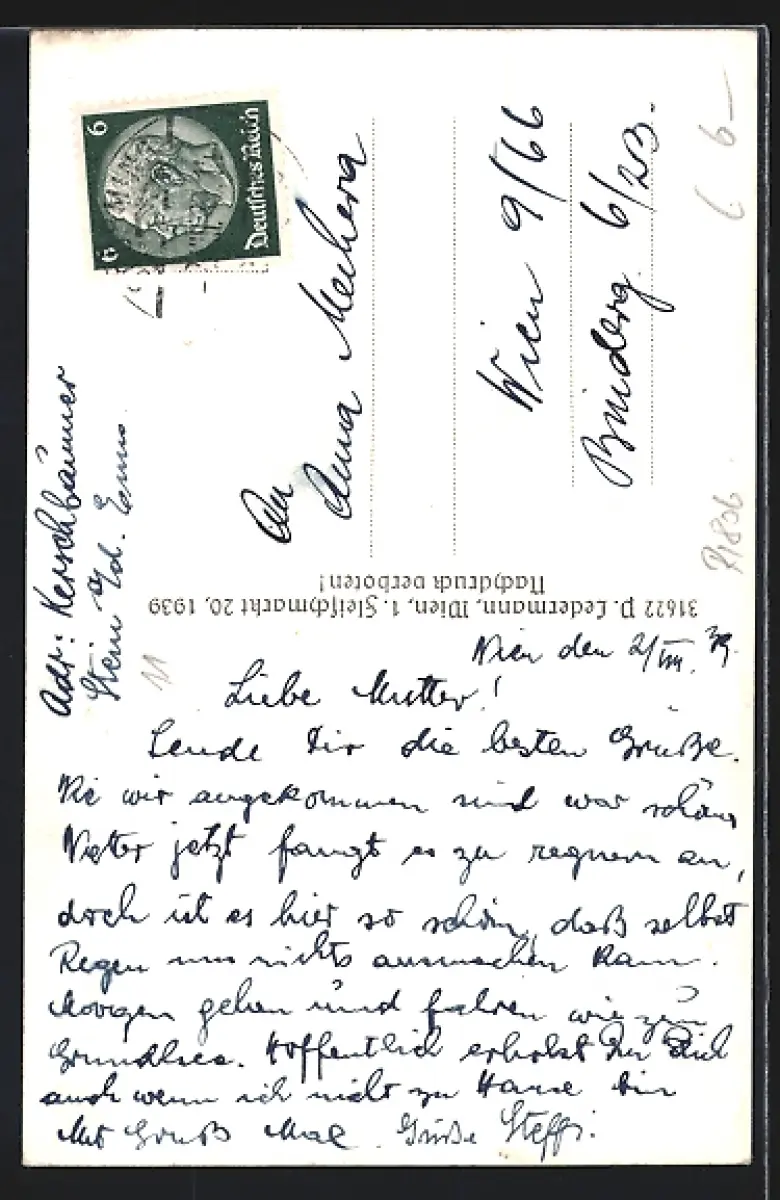 6 6
Deutsches Reich
An
Anna
Wien 9/66
6/23.
Adr: Kerschbaumer
Stein
31622 P. Ledermann, Wien, 1. Fleischmarkt 20, 1939
Nachdruck verboten!
11
Wien den 2/VIII. 39.
Liebe Mutter!
Sende Dir die besten Grüße.
Wie wir angekommen sind war schönes
Wetter jetzt fangt es zu regnen an,
doch ist es hier so schön, daß selbst
Regen uns nichts ausmachen kann.
Morgen gehen und fahren wir zum
Grundlsee. Hoffentlich erholst Du Dich
auch wenn ich nicht zu Hause bin
Mit Gruß Grüße Steffi.